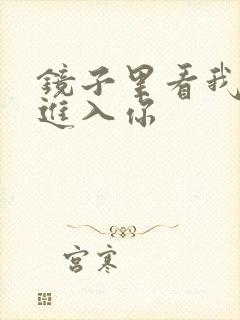 鏡子里看我
進入你
宮寒